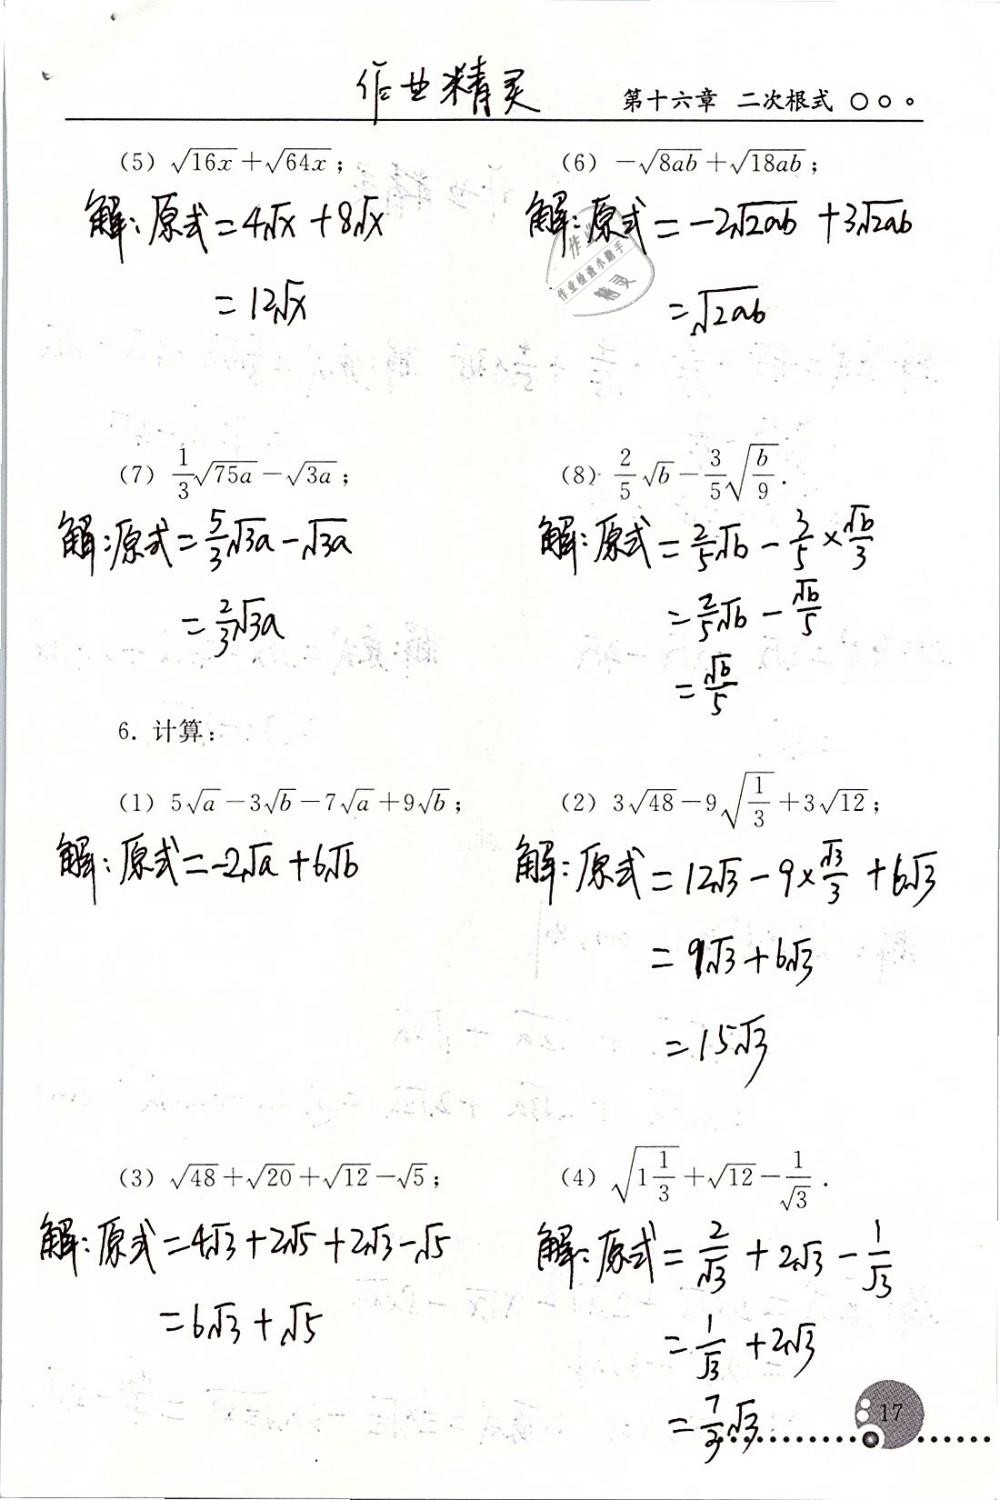 作业精灵
第十六章 二次根式
(5) √16x+√64x;
解:原式=4√x+8√x
=12√x
(6) -√8ab+√18ab;
解:原式=-2√2ab+3√2ab
=√2ab
作业检查小助手
精灵
(7) 1/3√75a-√3a;
解:原式=5/3√3a-√3a
=2/3√3a
(8) 2/5√b-3/5√(b/9).
解:原式=2/5√b-3/5×√b/3
=2/5√b-√b/5
=√b/5
6. 计算:
(1) 5√a-3√b-7√a+9√b;
解:原式=-2√a+6√b
(2) 3√48-9√(1/3)+3√12;
解:原式=12√3-9×√3/3+6√3
=9√3+6√3
=15√3
(3) √48+√20+√12-√5;
解:原式=4√3+2√5+2√3-√5
=6√3+√5
(4) √(1 1/3)+√12-1/√3.
解:原式=2/√3+2√3-1/√3
=1/√3+2√3
=7/3√3
17